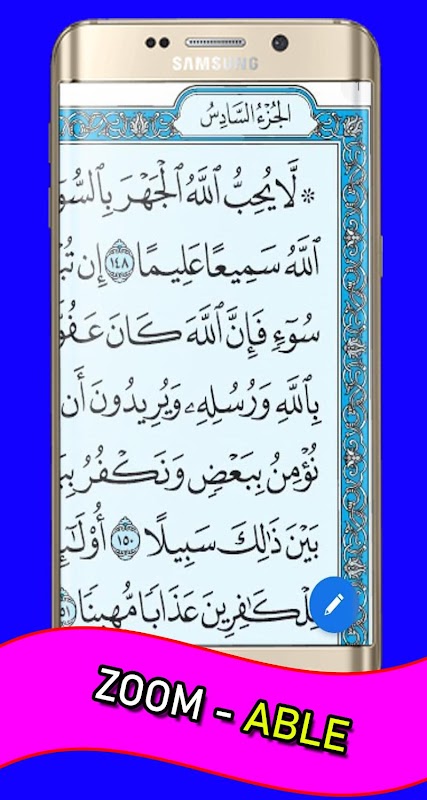 SAMSUNG
الجُزْءُ السَّادِسُ
* لَّا يُحِبُّ ٱللَّهُ ٱلْجَهْرَ بِٱلسُّو
ٱللَّهُ سَمِيعًا عَلِيمًا ١٤٨ إِن تُبْ
سُوٓءٍ فَإِنَّ ٱللَّهَ كَانَ عَفُوًّ
بِٱللَّهِ وَرُسُلِهِۦ وَيُرِيدُونَ أَن
نُؤْمِنُ بِبَعْضٍ وَنَكْفُرُ بِبَ
بَيْنَ ذَٰلِكَ سَبِيلًا ١٥٠ أُوْلَٰٓئِ
لِلْكَٰفِرِينَ عَذَابًا مُّهِينًا
ZOOM - ABLE